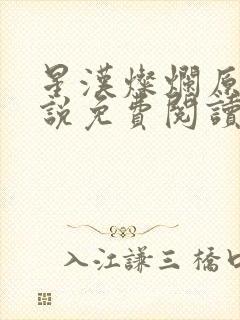 星漢燦爛原
說免費閱讀
入江謙三 橋口